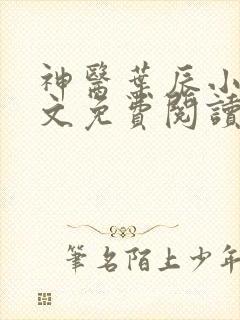 神醫葉辰小
文免費閱讀
筆名陌上少年